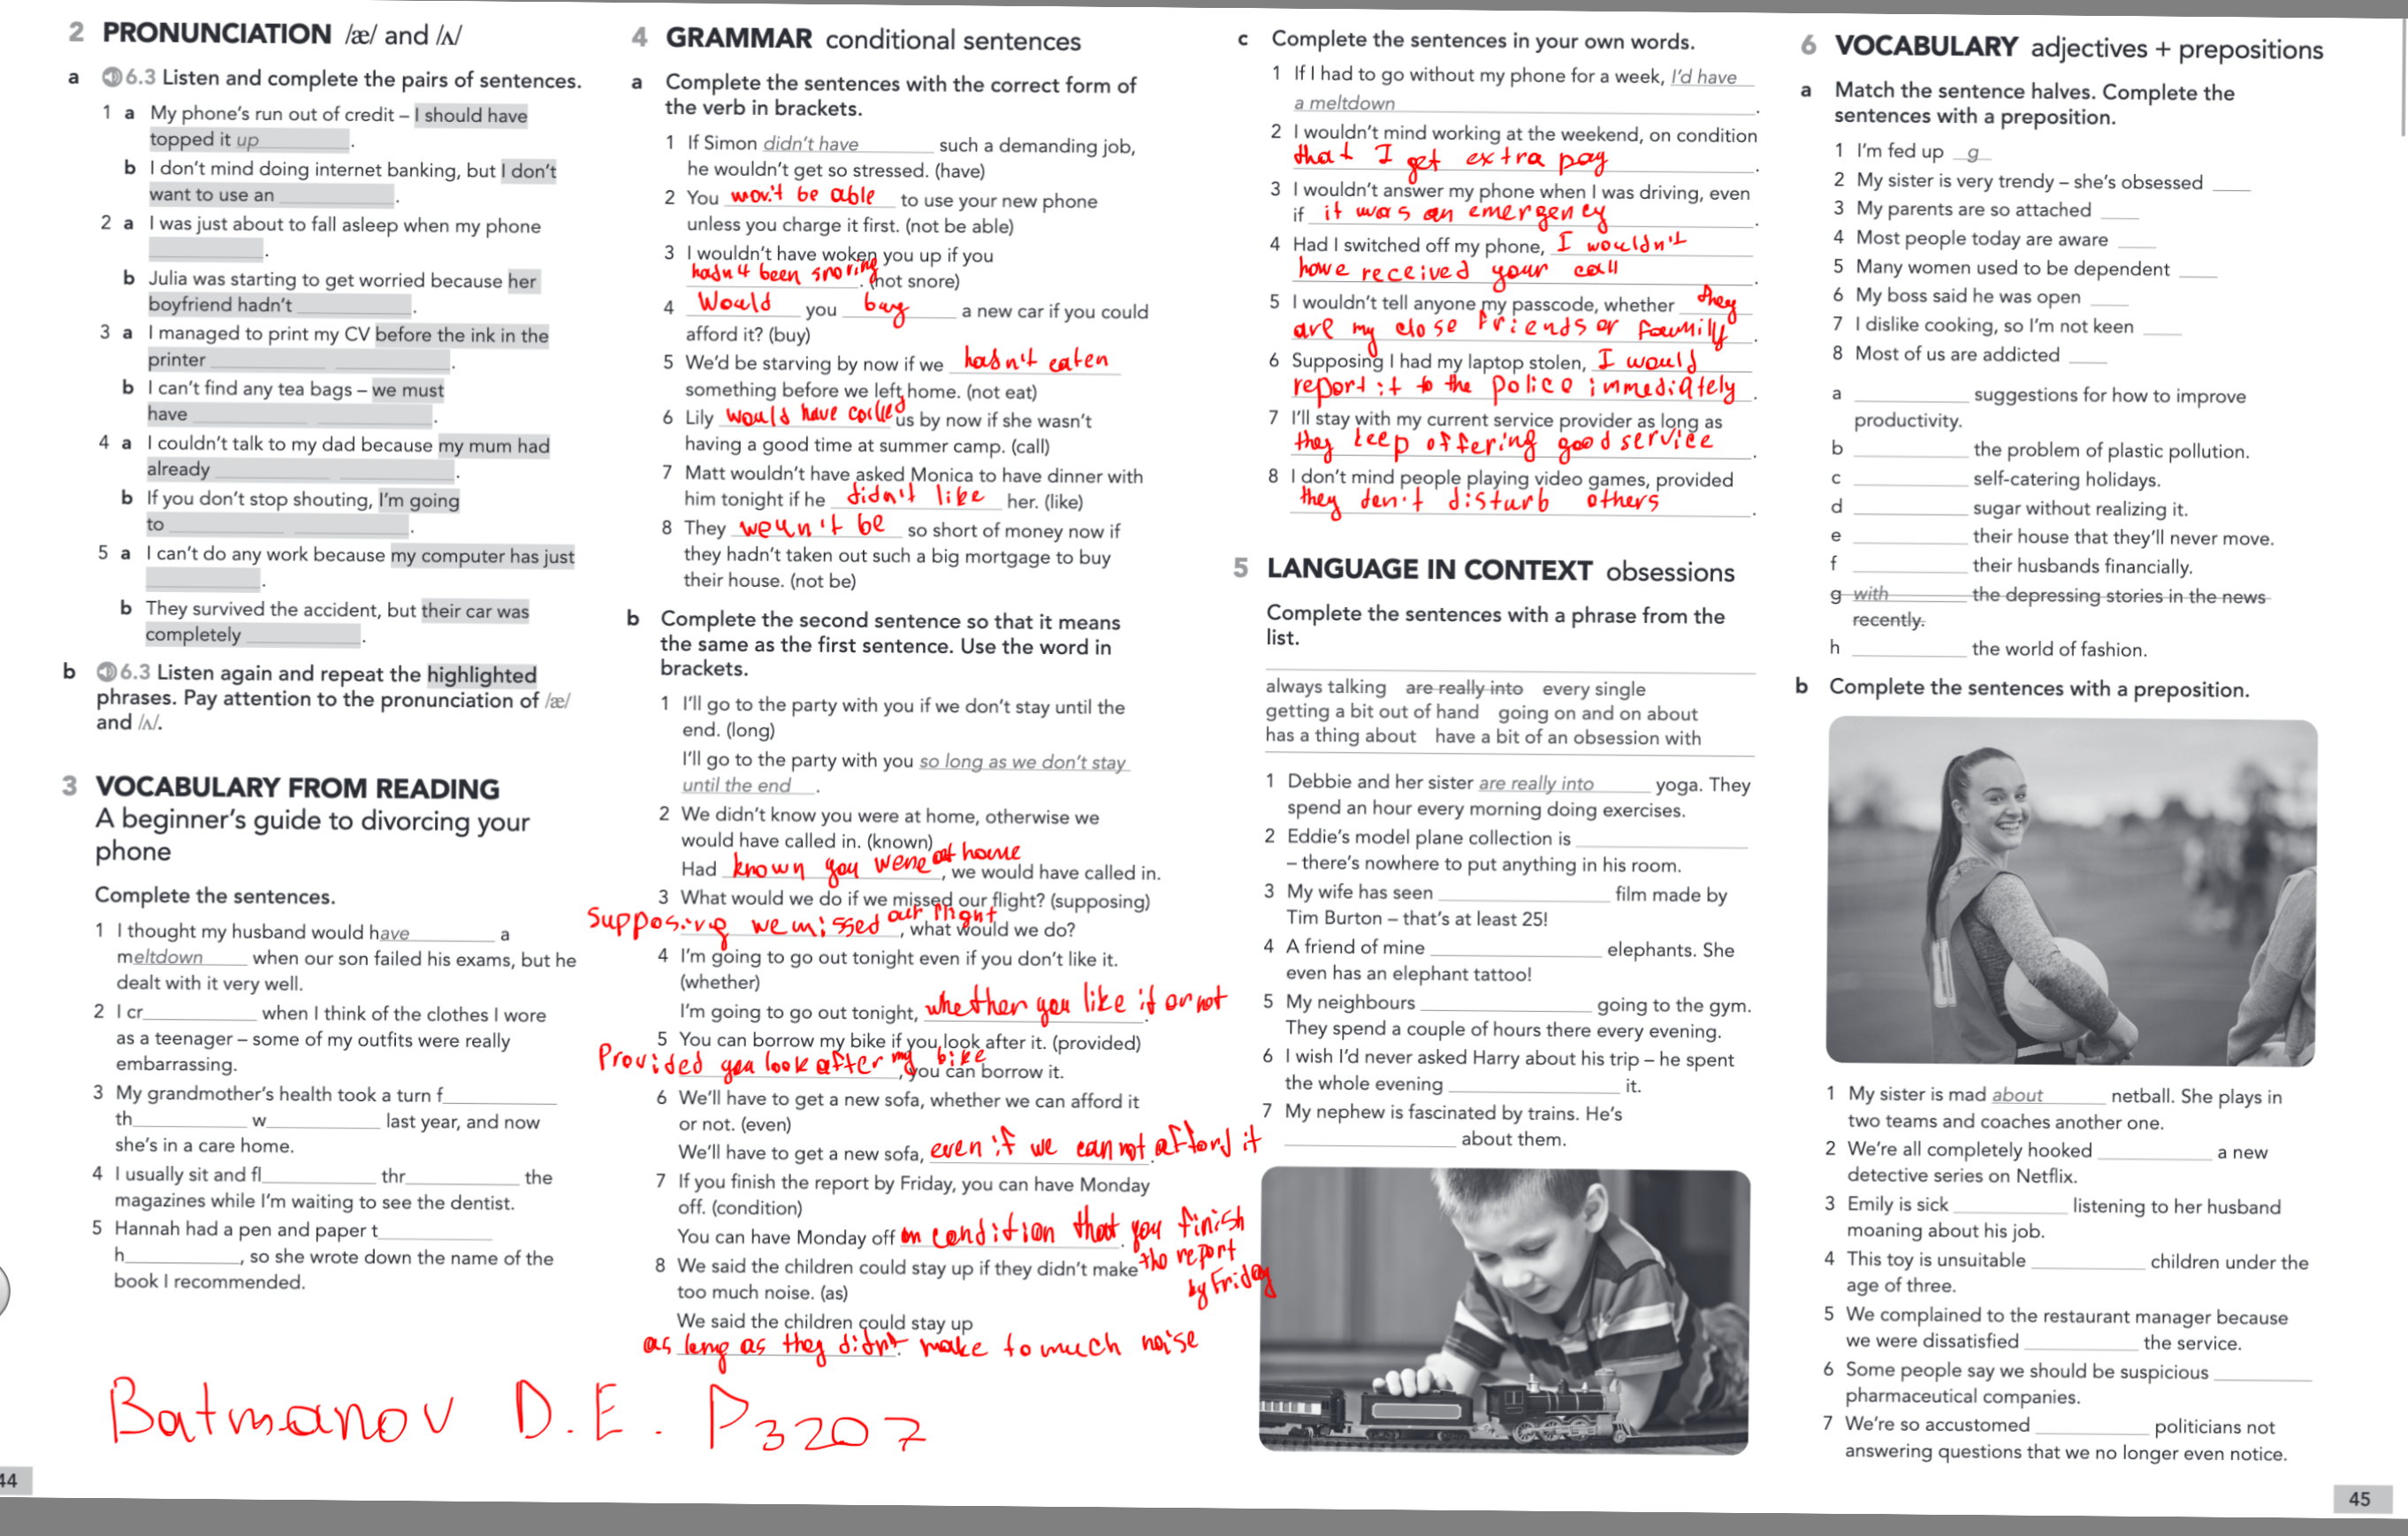 2 PRONUNCIATION /æ/ and /ʌ/
a 6.3 Listen and complete the pairs of sentences.
1 a My phone's run out of credit – I should have
topped it up ____.
b I don't mind doing internet banking, but I don't
want to use an ____.
2 a I was just about to fall asleep when my phone
____.
b Julia was starting to get worried because her
boyfriend hadn't ____.
3 a I managed to print my CV before the ink in the
printer ____ ____.
b I can't find any tea bags – we must
have ____ ____.
4 a I couldn't talk to my dad because my mum had
already ____ ____.
b If you don't stop shouting, I'm going
to ____ ____.
5 a I can't do any work because my computer has just
____.
b They survived the accident, but their car was
completely ____.
b 6.3 Listen again and repeat the highlighted
phrases. Pay attention to the pronunciation of /æ/
and /ʌ/.
3 VOCABULARY FROM READING
A beginner's guide to divorcing your
phone
Complete the sentences.
1 I thought my husband would have ____ a
meltdown ____ when our son failed his exams, but he
dealt with it very well.
2 I cr____ when I think of the clothes I wore
as a teenager – some of my outfits were really
embarrassing.
3 My grandmother's health took a turn f____
th____ w____ last year, and now
she's in a care home.
4 I usually sit and fl____ thr____ the
magazines while I'm waiting to see the dentist.
5 Hannah had a pen and paper t____
h____, so she wrote down the name of the
book I recommended.
Batmanov D.E. P3207
44
4 GRAMMAR conditional sentences
a Complete the sentences with the correct form of
the verb in brackets.
1 If Simon didn't have such a demanding job,
he wouldn't get so stressed. (have)
2 You won't be able to use your new phone
unless you charge it first. (not be able)
3 I wouldn't have woken you up if you
hadn't been snoring. (not snore)
4 Would you buy a new car if you could
afford it? (buy)
5 We'd be starving by now if we hasn't eaten
something before we left home. (not eat)
6 Lily would have called us by now if she wasn't
having a good time at summer camp. (call)
7 Matt wouldn't have asked Monica to have dinner with
him tonight if he didn't like her. (like)
8 They woun't be so short of money now if
they hadn't taken out such a big mortgage to buy
their house. (not be)
b Complete the second sentence so that it means
the same as the first sentence. Use the word in
brackets.
1 I'll go to the party with you if we don't stay until the
end. (long)
I'll go to the party with you so long as we don't stay
until the end.
2 We didn't know you were at home, otherwise we
would have called in. (known)
Had known you were at home, we would have called in.
3 What would we do if we missed our flight? (supposing)
Supposing we missed our flight, what would we do?
4 I'm going to go out tonight even if you don't like it.
(whether)
I'm going to go out tonight, whether you like it or not.
5 You can borrow my bike if you look after it. (provided)
Provided you look after my bike, you can borrow it.
6 We'll have to get a new sofa, whether we can afford it
or not. (even)
We'll have to get a new sofa, even if we cannot afford it.
7 If you finish the report by Friday, you can have Monday
off. (condition)
You can have Monday off on condition that you finish
the report
by Friday
8 We said the children could stay up if they didn't make
too much noise. (as)
We said the children could stay up
as long as they didn't make to much noise
c Complete the sentences in your own words.
1 If I had to go without my phone for a week, I'd have
a meltdown.
2 I wouldn't mind working at the weekend, on condition
that I get extra pay.
3 I wouldn't answer my phone when I was driving, even
if it was an emergency.
4 Had I switched off my phone, I wouldn't
have received your call.
5 I wouldn't tell anyone my passcode, whether they
are my close friends or fawmilly.
6 Supposing I had my laptop stolen, I would
report it to the police immediately.
7 I'll stay with my current service provider as long as
they keep offering good service.
8 I don't mind people playing video games, provided
they don't disturb others.
5 LANGUAGE IN CONTEXT obsessions
Complete the sentences with a phrase from the
list.
always talking are really into every single
getting a bit out of hand going on and on about
has a thing about have a bit of an obsession with
1 Debbie and her sister are really into yoga. They
spend an hour every morning doing exercises.
2 Eddie's model plane collection is ____
– there's nowhere to put anything in his room.
3 My wife has seen ____ film made by
Tim Burton – that's at least 25!
4 A friend of mine ____ elephants. She
even has an elephant tattoo!
5 My neighbours ____ going to the gym.
They spend a couple of hours there every evening.
6 I wish I'd never asked Harry about his trip – he spent
the whole evening ____ it.
7 My nephew is fascinated by trains. He's
____ about them.
6 VOCABULARY adjectives + prepositions
a Match the sentence halves. Complete the
sentences with a preposition.
1 I'm fed up g
2 My sister is very trendy – she's obsessed ____
3 My parents are so attached ____
4 Most people today are aware ____
5 Many women used to be dependent ____
6 My boss said he was open ____
7 I dislike cooking, so I'm not keen ____
8 Most of us are addicted ____
a ____ suggestions for how to improve
productivity.
b ____ the problem of plastic pollution.
c ____ self-catering holidays.
d ____ sugar without realizing it.
e ____ their house that they'll never move.
f ____ their husbands financially.
g with the depressing stories in the news
recently.
h ____ the world of fashion.
b Complete the sentences with a preposition.
1 My sister is mad about netball. She plays in
two teams and coaches another one.
2 We're all completely hooked ____ a new
detective series on Netflix.
3 Emily is sick ____ listening to her husband
moaning about his job.
4 This toy is unsuitable ____ children under the
age of three.
5 We complained to the restaurant manager because
we were dissatisfied ____ the service.
6 Some people say we should be suspicious ____
pharmaceutical companies.
7 We're so accustomed ____ politicians not
answering questions that we no longer even notice.
45